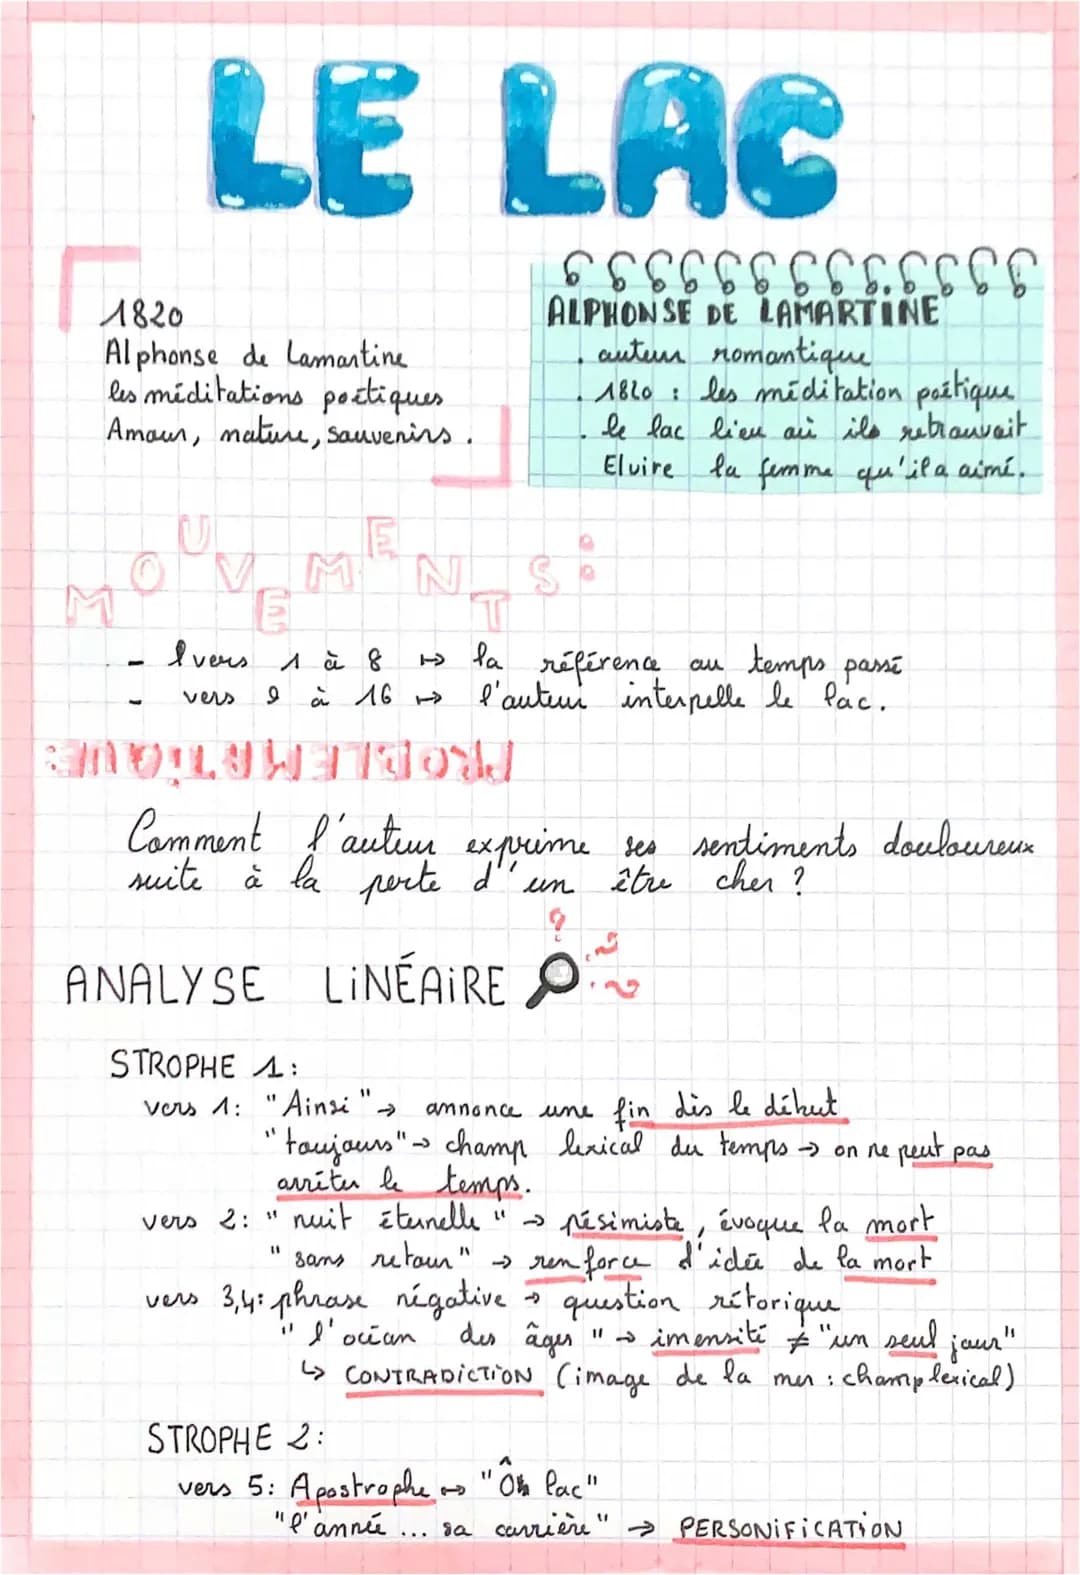 LE LAC
1820
Alphonse de Lamartine
les méditations poétiques
Amour, nature, souvenirs.
ALPHONSE DE LAMARTINE
. auteur romantique
. 1820 : les méditation poétique
. le lac lieu où ils retrouvait
Elvire la femme qu'il a aimé.
MOUVEMENTS :
- vers 1 à 8 ↦ la référence au temps passé
- vers 9 à 16 ↦ l'auteur interpelle le lac.
PROBLEMATIQUE:
Comment l'auteur exprime ses sentiments douloureux
suite à la perte d'un être cher ?
ANALYSE LINÉAIRE
STROPHE 1:
vers 1: "Ainsi" → annonce une fin dès le début
"toujours" → champ lexical du temps → on ne peut pas
arrêter le temps.
vers 2: "nuit éternelle" → pésimiste, évoque la mort
"sans retour" → renforce d'idée de la mort
vers 3,4: phrase négative → question rétorique
"l'océan des âges" → imensité ≠ "un seul jour"
↳ CONTRADICTION (image de la mer : champ lexical)
STROPHE 2:
vers 5: Apostrophe ↦ "Ô lac"
"l'année ... sa carrière" → PERSONIFICATION